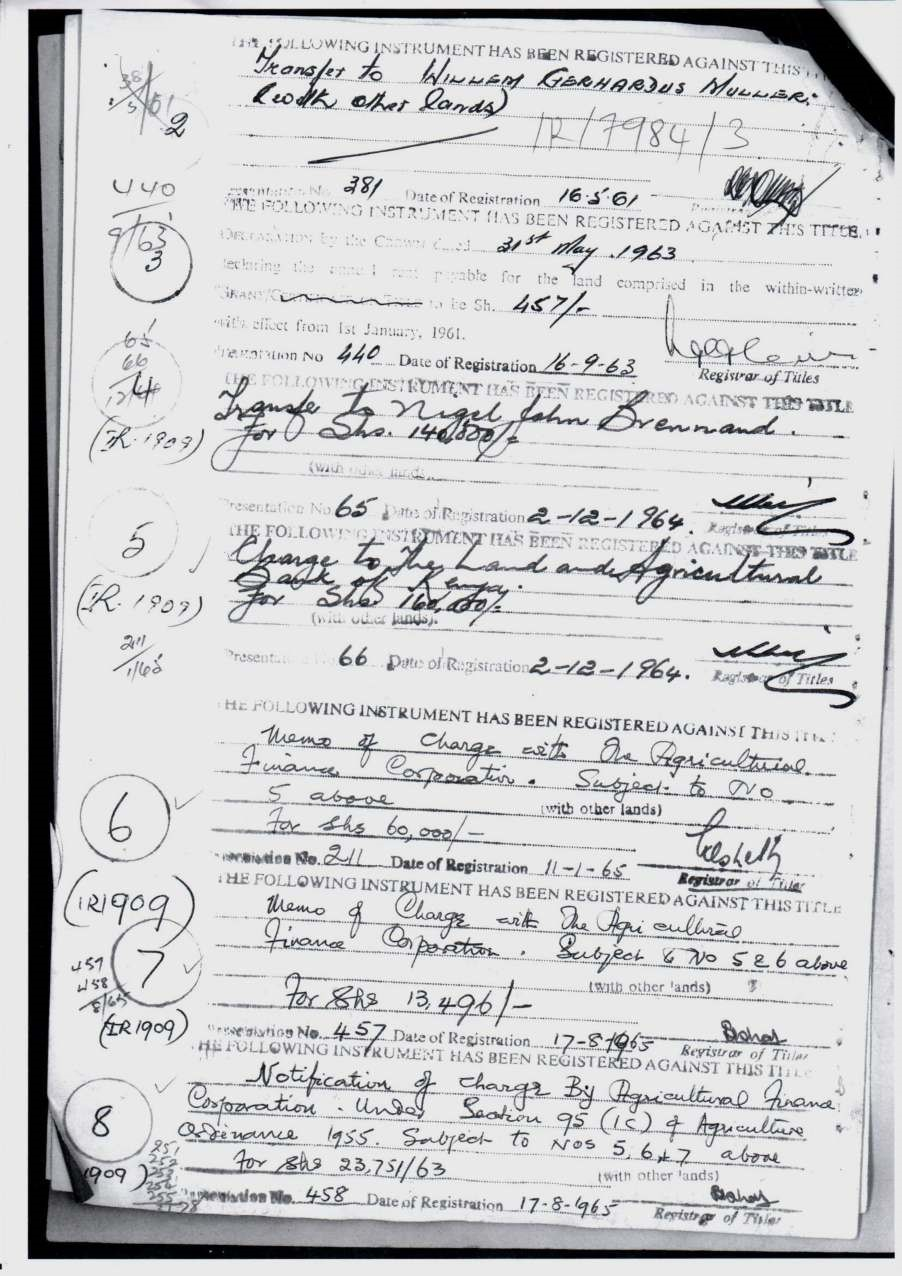 THE FOLLOWING INSTRUMENT HAS BEEN REGISTERED AGAINST THIS
Transfer to WILLEM GERHARDUS MULLER:
(with other lands)
2
IR/7984/3
No. 381 Date of Registration 16.5.61
THE FOLLOWING INSTRUMENT HAS BEEN REGISTERED AGAINST THIS TITLE.
440
9/63
3
DECLARATION by the Crown dated 31st May 1963
declaring the annual rent payable for the land comprised in the within-written
GRANT/ to be Sh. 457/-
with effect from 1st January, 1961.
Presentation No 440 Date of Registration 16-9-63
Registrar of Titles
65
66
12/64
4
(IR.1909)
THE FOLLOWING INSTRUMENT HAS BEEN REGISTERED AGAINST THIS TITLE
Transfer to Nigel John Brennand.
For Shs. 140,000/-
(with other lands
Presentation No. 65 Date of Registration 2-12-1964.
Registrar of Titles
THE FOLLOWING INSTRUMENT HAS BEEN REGISTERED AGAINST THIS TITLE
5
(IR.1909)
Charge to The Land and Agricultural
Bank of Kenya.
For Shs. 160,000/-
(with other lands).
211
1/65
Presentation No. 66 Date of Registration 2-12-1964.
Registrar of Titles
THE FOLLOWING INSTRUMENT HAS BEEN REGISTERED AGAINST THIS TITLE
Memo of Charge with The Agricultural
Finance Corporation. Subject to No
5 above
(with other lands)
6
For Shs 60,000/-
Presentation No. 211 Date of Registration 11-1-65
Registrar of Titles
THE FOLLOWING INSTRUMENT HAS BEEN REGISTERED AGAINST THIS TITLE
(IR1909)
Memo of Charge with The Agricultural
Finance Corporation. Subject to No 5 & 6 above
7
(with other lands)
457
458
8/65
For Shs 13,496/-
(IR1909)
Presentation No. 457 Date of Registration 17-8-1965
Registrar of Titles
THE FOLLOWING INSTRUMENT HAS BEEN REGISTERED AGAINST THIS TITLE
Notification of charge By Agricultural Finance
Corporation. Under Section 95 (1C) of Agriculture
Ordinance 1955. Subject to Nos 5, 6, & 7 above
8
For Shs 23,751/63
(with other lands)
1909)
Presentation No. 458 Date of Registration 17-8-1965
Registrar of Titles